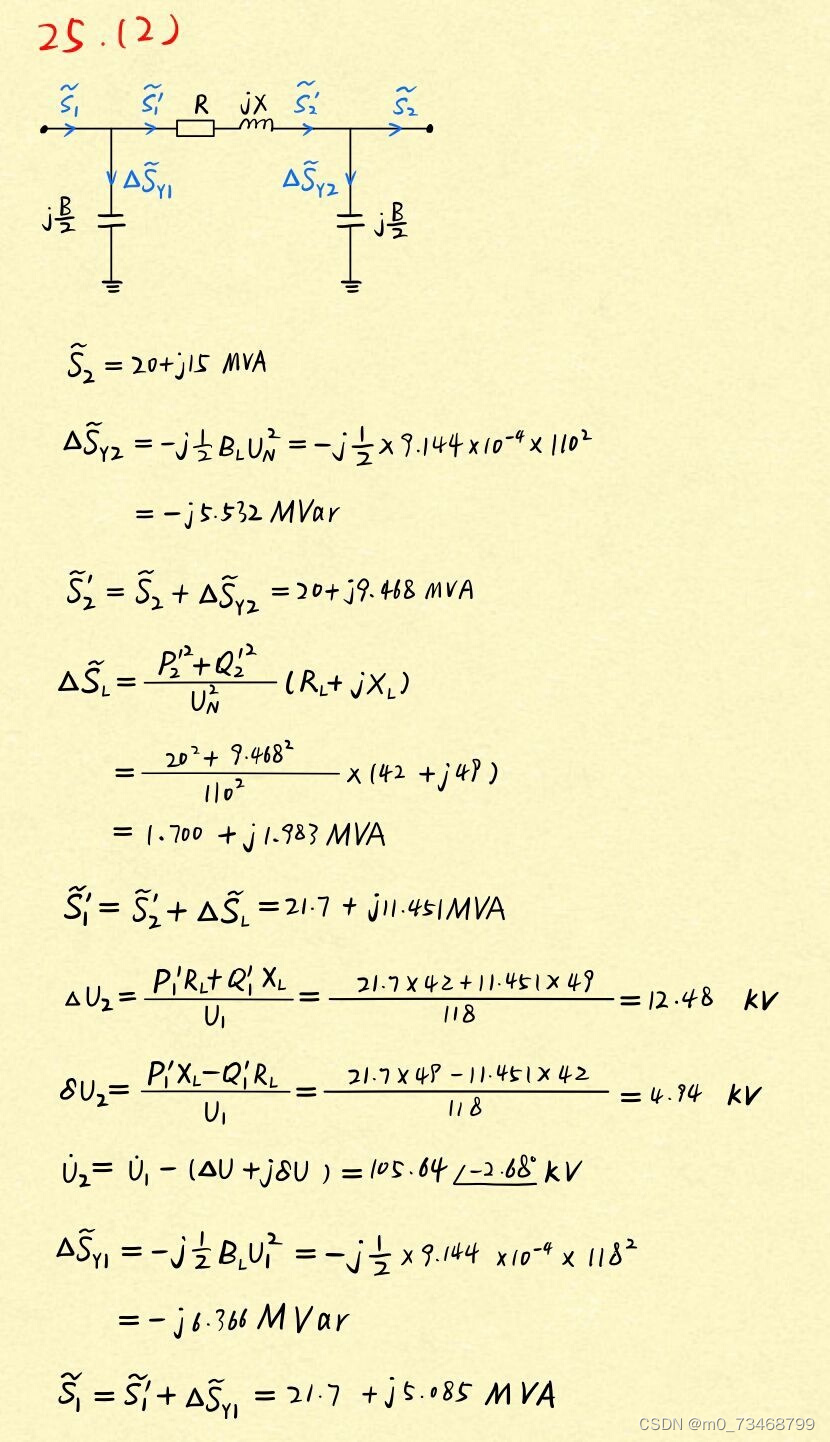 25.(2)
S̃₁ S̃₁′ R jX S̃₂′ S̃₂
ΔS̃Y1 ΔS̃Y2
j B/2 j B/2
S̃₂ = 20+j15 MVA
ΔS̃Y2 = -j 1/2 B_L U_N² = -j 1/2 × 9.144×10⁻⁴ × 110²
= -j5.532 MVar
S̃₂′ = S̃₂ + ΔS̃Y2 = 20+j9.468 MVA
ΔS̃_L = (P₂′² + Q₂′²)/U_N² (R_L + jX_L)
= (20² + 9.468²)/110² × (42 + j49)
= 1.700 + j1.983 MVA
S̃₁′ = S̃₂′ + ΔS̃_L = 21.7 + j11.451 MVA
ΔU₂ = (P₁′R_L + Q₁′X_L)/U₁ = (21.7×42 + 11.451×49)/118 = 12.48 kV
δU₂ = (P₁′X_L - Q₁′R_L)/U₁ = (21.7×49 - 11.451×42)/118 = 4.94 kV
U̇₂ = U̇₁ - (ΔU + jδU) = 105.64∠-2.68° kV
ΔS̃Y1 = -j 1/2 B_L U₁² = -j 1/2 × 9.144 ×10⁻⁴ × 118²
= -j6.366 MVar
S̃₁ = S̃₁′ + ΔS̃Y1 = 21.7 + j5.085 MVA
CSDN @m0_73468799